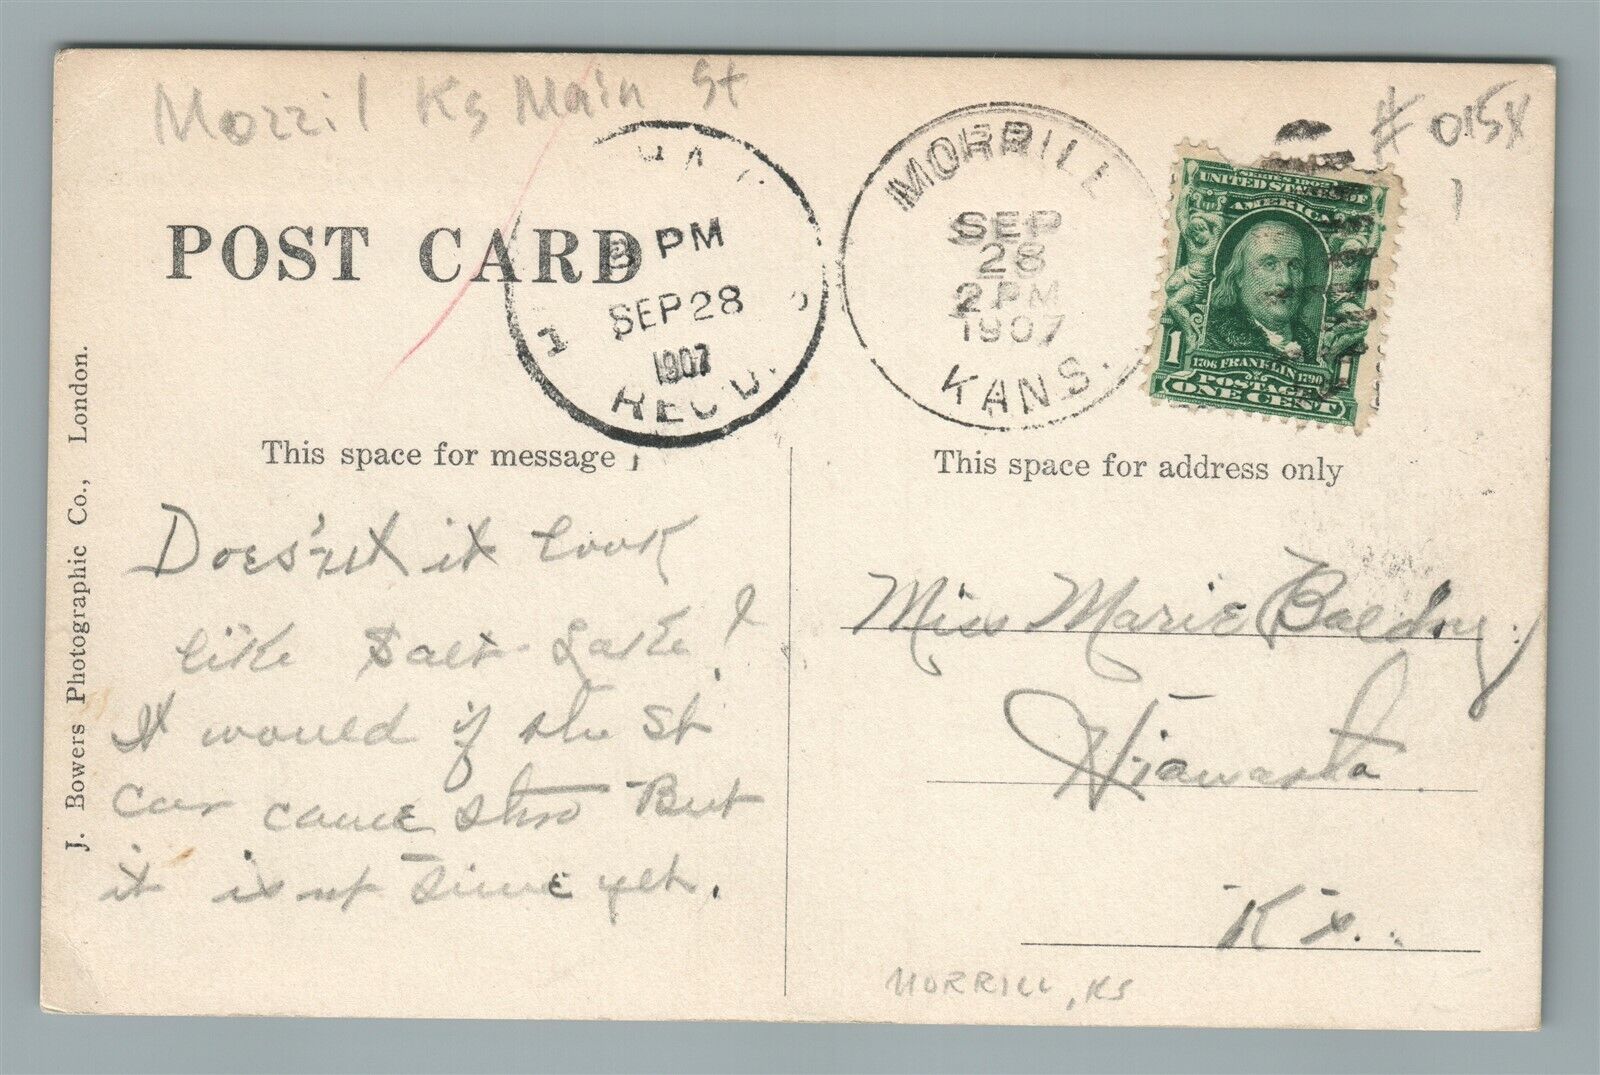 Morril Ks Main St
# 015X
1
POST CARD
3 PM
SEP 28
1907
REC'D.
1
MORRILL
SEP
28
2 PM
1907
KANS.
SERIES 1902
UNITED STATES OF
AMERICA
1706 FRANKLIN 1790
1 POSTAGE 1
ONE CENT
J. Bowers Photographic Co., London.
This space for message
Does'nt it look
like Salt Lake?
It would if the St
car came thro But
it is not time yet.
This space for address only
Miss Marie
Hiawatha
Ks.
MORRILL, KS